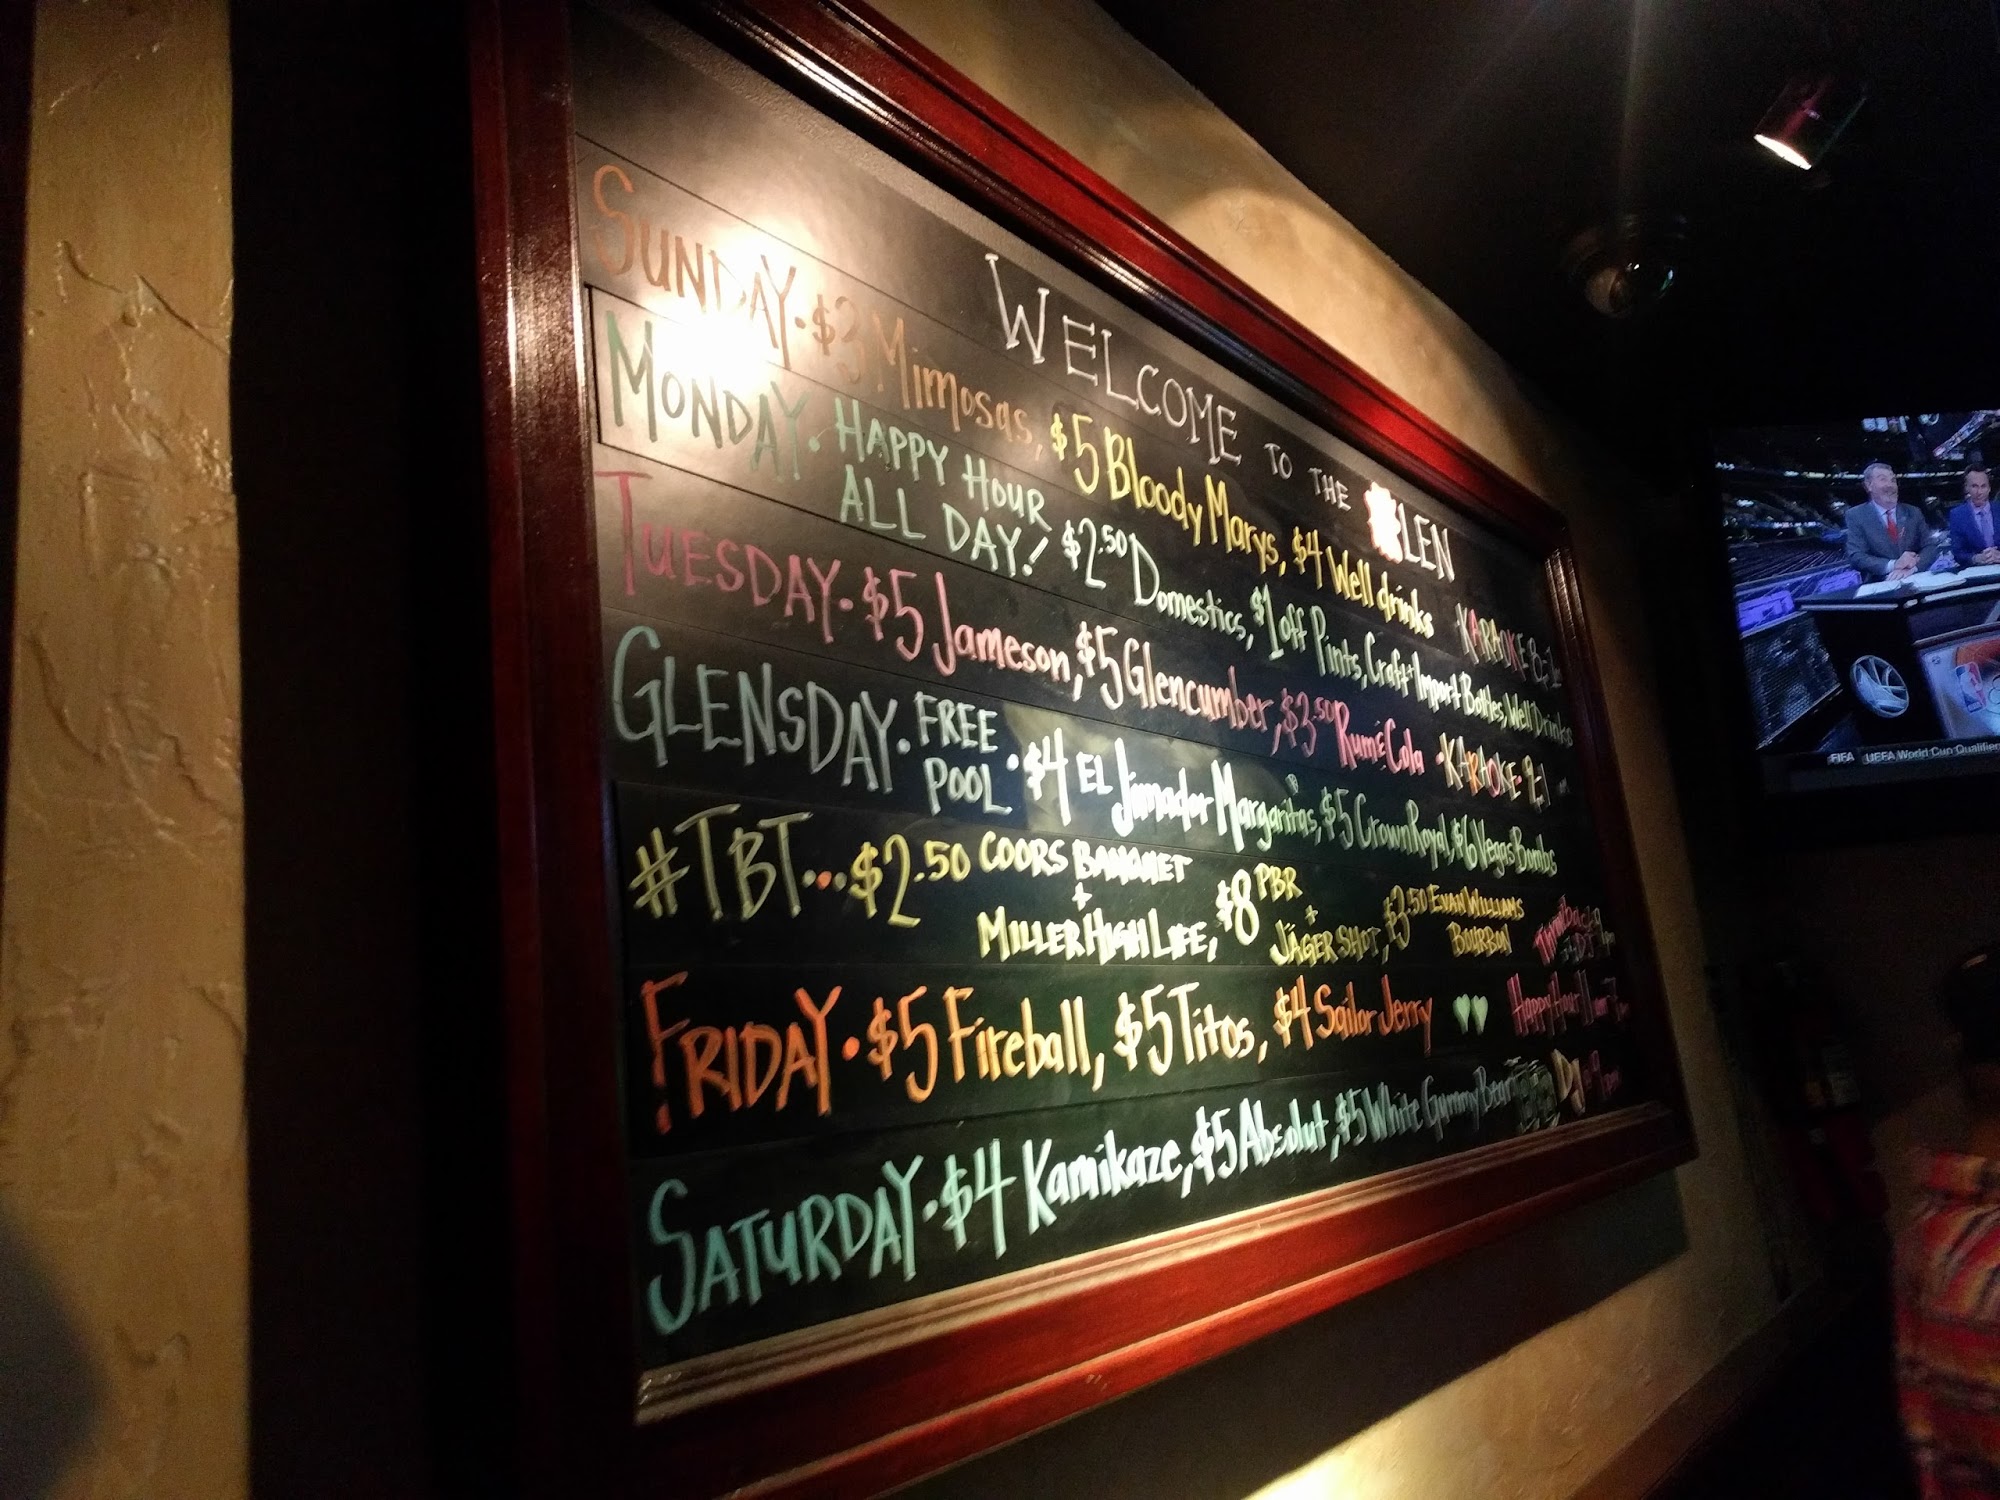 WELCOME TO THE GLEN
SUNDAY • $3 Mimosas, $5 Bloody Marys, $4 Well drinks KARAOKE
MONDAY • HAPPY HOUR ALL DAY! $2.50 Domestics, $1 off Pints, Craft + Import Bottles, Well Drinks
TUESDAY • $5 Jameson, $5 Glencumber, $3.50 Rum & Cola • KARAOKE
GLENSDAY • FREE POOL • $4 EL Jimador Margaritas, $5 Crown Royal, $6 Vegas Bombs
#TBT... $2.50 COORS BANQUET + MILLER HIGH LIFE, $8 PBR + JÄGER SHOT, $3.50 EVAN WILLIAMS BOURBON
FRIDAY • $5 Fireball, $5 Titos, $4 Sailor Jerry Happy Hour
SATURDAY • $4 Kamikaze, $5 Absolut, $5 White Gummy Bear DJ
FIFA UEFA World Cup Qualifier
NBA